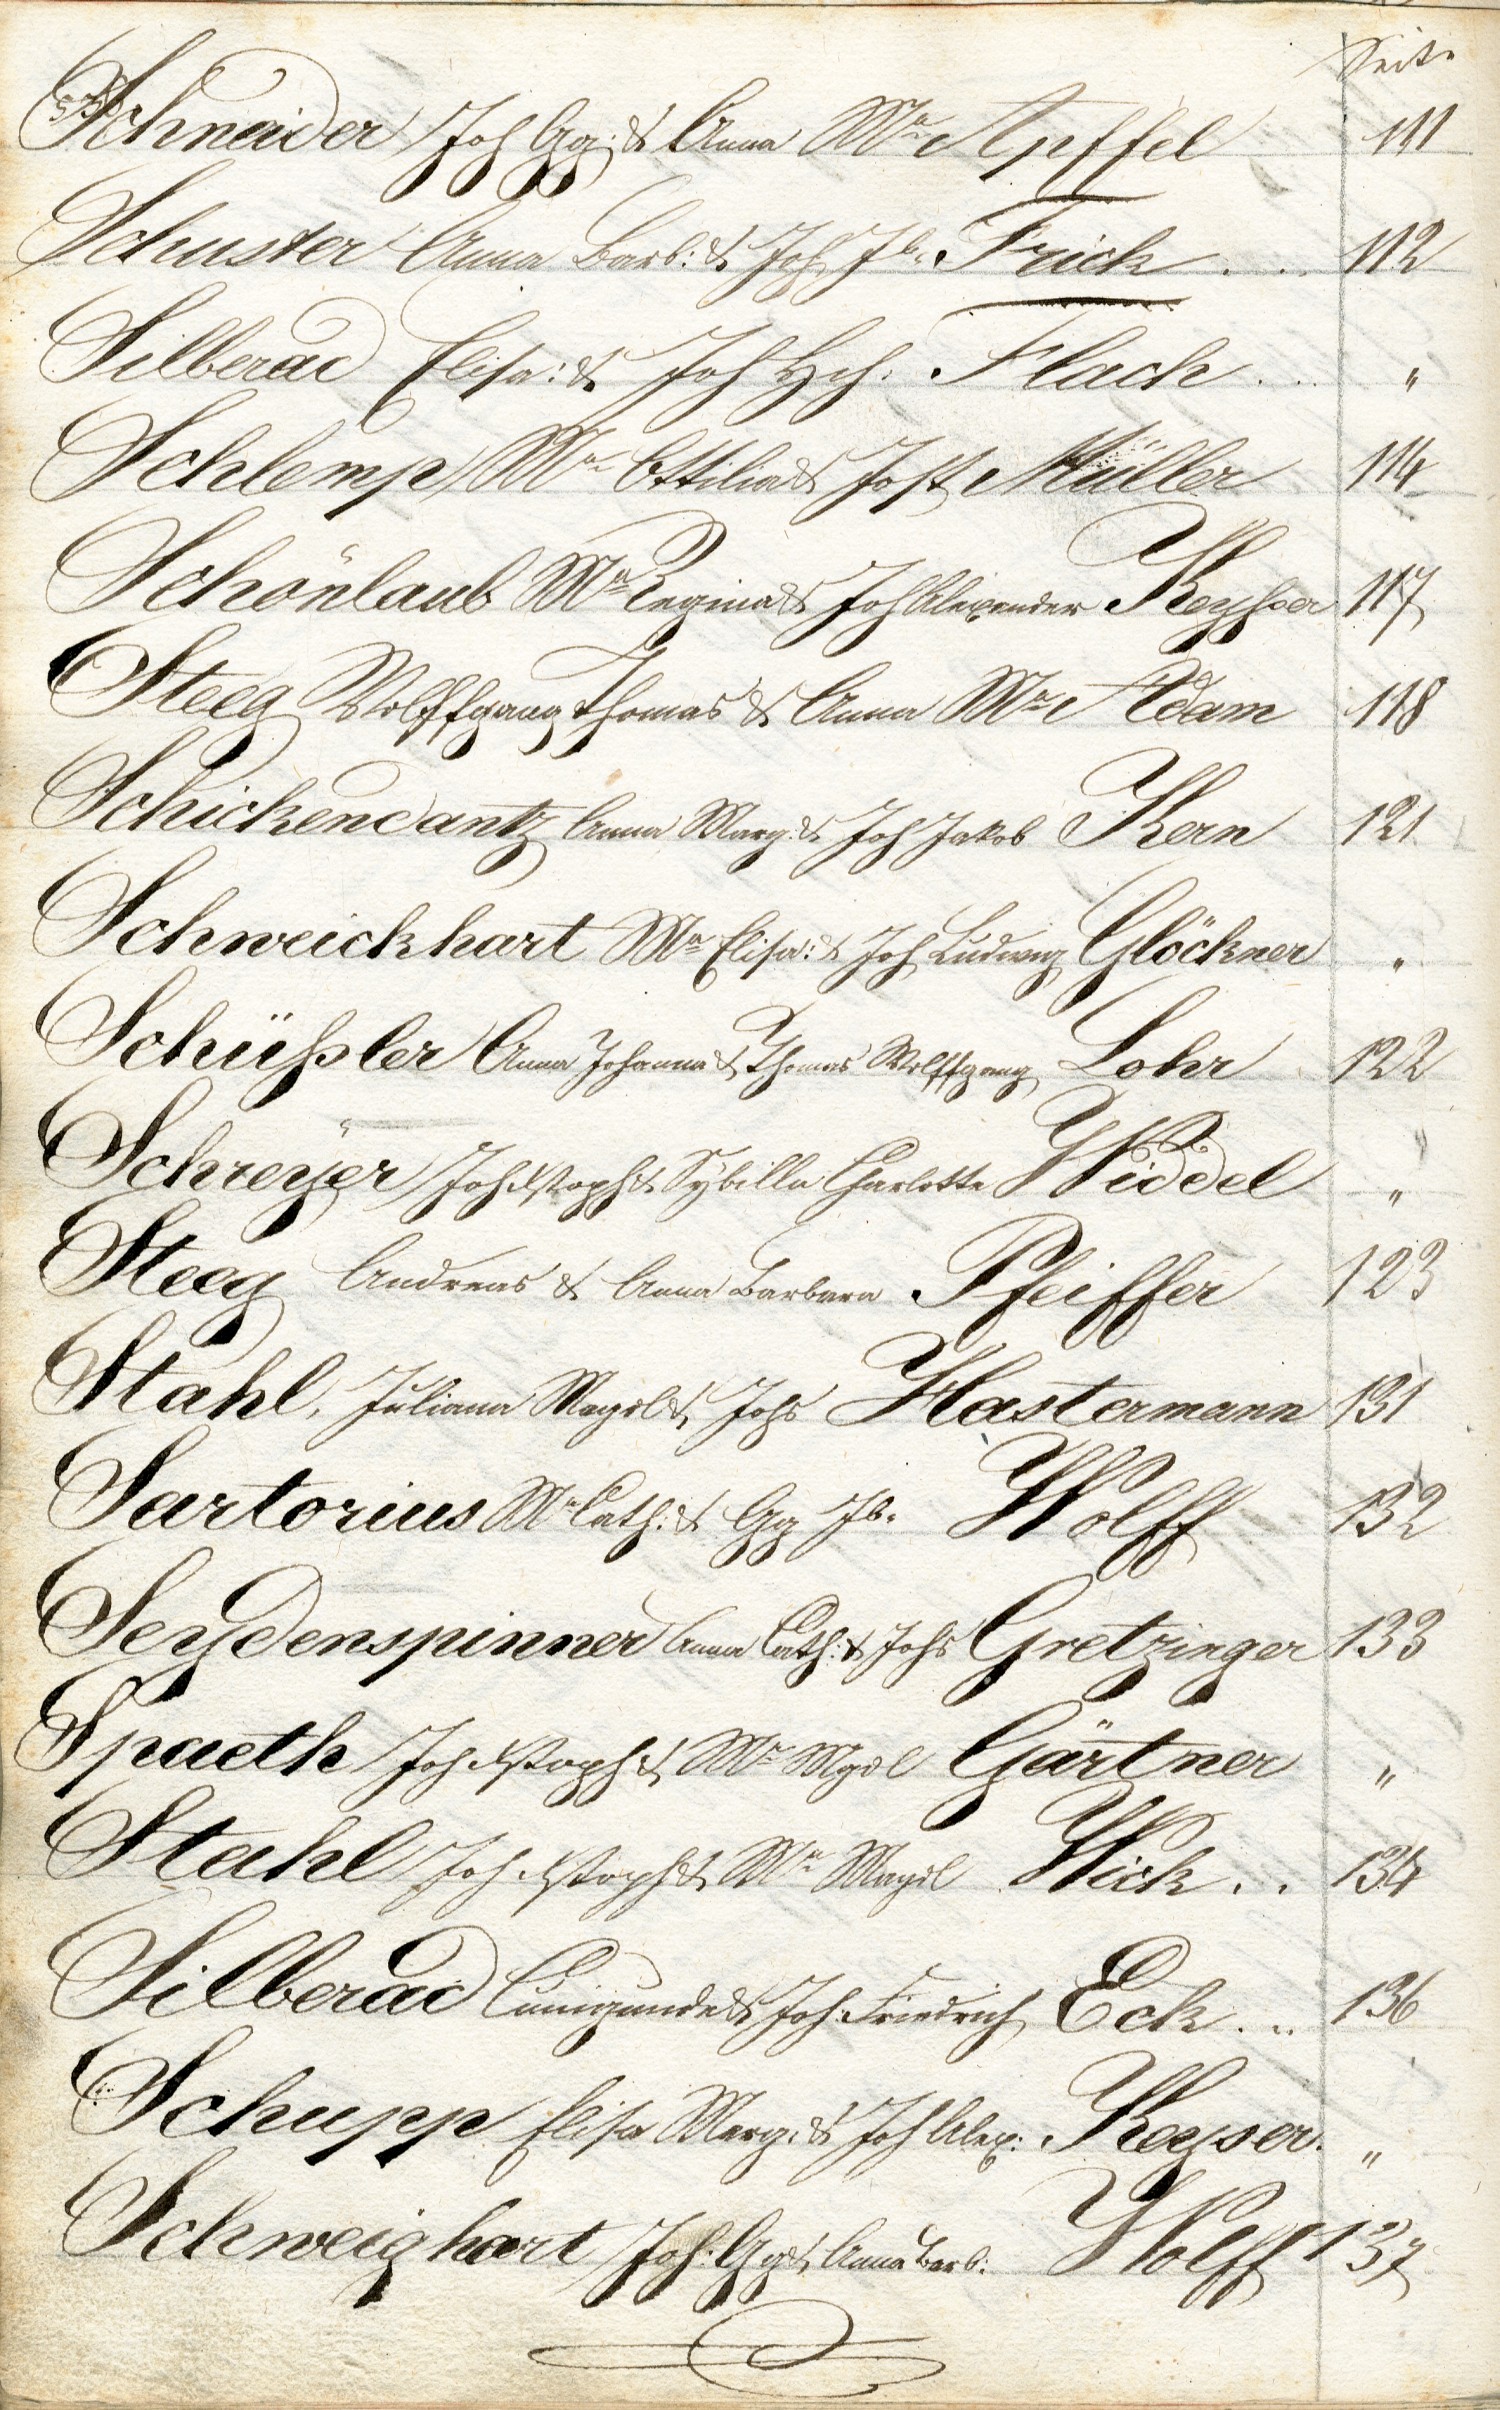 Seite
Schneider Joh Gg: & Anna Mᵃ Apffel 111
Schuster Anna Barb: & Joh Jb. Frick .... 112
Silberad Elisa: & Joh Hch: Flach ... "
Schlemp Mᵃ Ottilia & Jost Müller 114
Schönlaub Mᵃ Regina & Joh Alexander Keyßer 117
Steeg Wolffgang Thomas & Anna Mᵃ Adam 118
Schickendantz Anna Marg: & Joh Jakob Kern 121
Schweickhart Mᵃ Elisa: & Joh Ludwig Glöckner "
Schüßler Anna Johanna & Thomas Wolffgang Lohr 122
Schreyer Joh Xstoph & Sybilla Charlotte Widdel "
Steeg Andreas & Anna Barbara Pfeiffer 123
Stahl, Juliana Magdl & Johs Hastermann 131
Sartorius Mᵃ Cath: & Gg Jb. Wolff 132
Seydenspinner Anna Cath: & Johs Gretzinger 133
Spaeth Joh Xstoph & Mᵃ Mgdl Gärtner "
Stahl Joh Xstoph & Mᵃ Magdl Wick .. 134
Silberad Cunigunde & Joh: Friedrich Eck ... 136
Schupp Elisa Marg: & Joh Alex: Keyser. "
Schweighart Joh: Gg & Anna Barb: Wolff 137